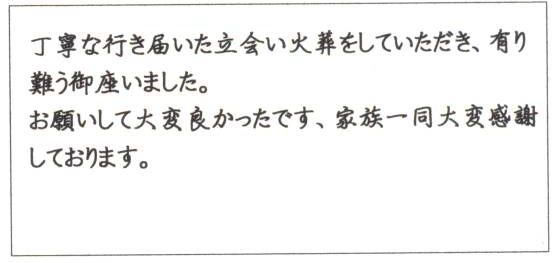 丁寧な行き届いた立会い火葬をしていただき、有り
難う御座いました。
お願いして大変良かったです、家族一同大変感謝
しております。